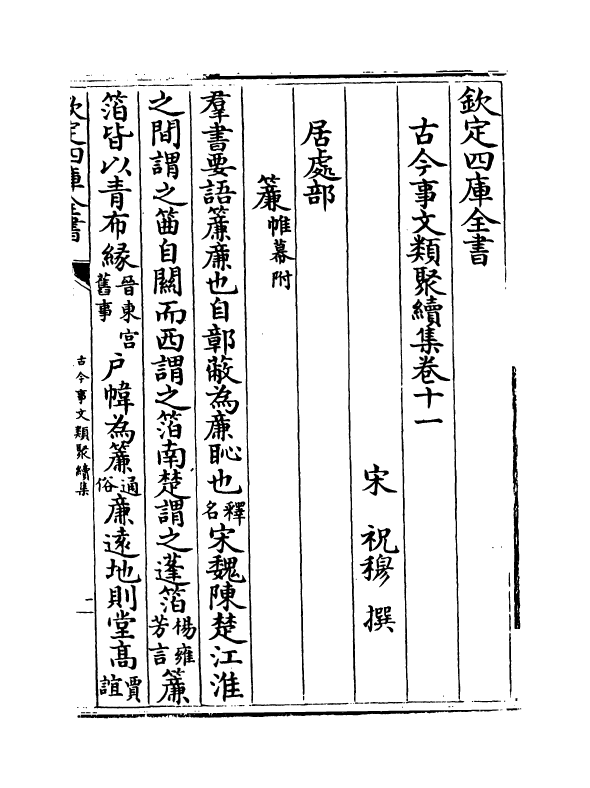 欽定四庫全書
古今事文類聚續集卷十一
宋 祝穆 撰
居處部
簾帷幕附
羣書要語簾廉也自鄣蔽為廉恥也釋名宋魏陳楚江淮
之間謂之䒼自關而西謂之箔南楚謂之蓬箔楊雍芳言簾
箔皆以青布縁晉東宮舊事户幃為簾通俗廉逺地則堂高賈誼
欽定四庫全書
古今事文類聚續集
一